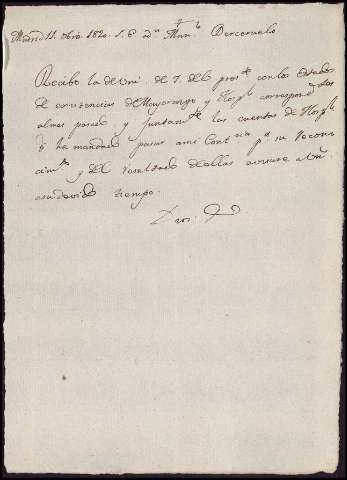 Madrid 11. Nbre 1820. S. Dn. Man.l Berceruelo
Recibo la de Vm. de 7. del pres.te con los Estados
de existencias de Mayorazgo y Hosp.l correspond.tes
al mes pasado, y juntam.te las cuentas de Hosp.l
q. he mandado pasar a mi Cont.ria p.a su recono-
cim.to y del resultado de ellas avisaré a Vm.
a su devido tiempo.
Dios &